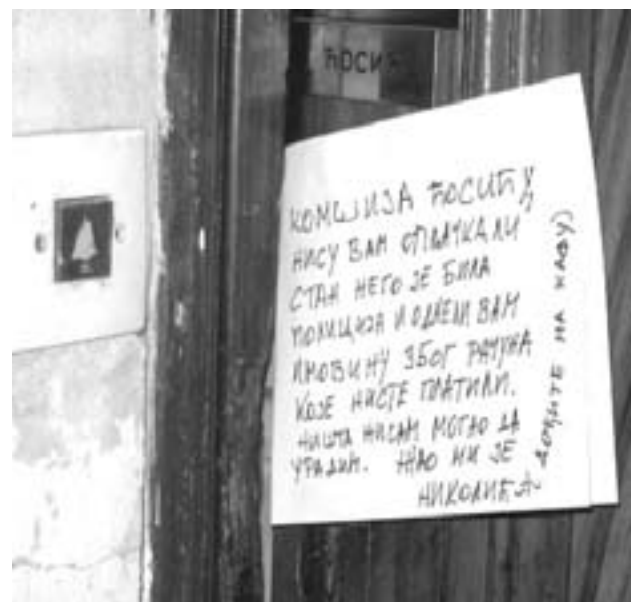 ЋОСИЋ
КОМШИЈА ЋОСИЋУ
НИСУ ВАМ ОПЉАЧКАЛИ
СТАН НЕГО ЈЕ БИЛА
ПОЛИЦИЈА И ОДНЕЛИ ВАМ
ИМОВИНУ ЗБОГ РАЧУНА
КОЈЕ НИСТЕ ПЛАТИЛИ.
НИШТА НИСАМ МОГАО ДА
УРАДИМ. ЖАО МИ ЈЕ
НИКОЛИЋ А
ДОЂИТЕ НА КАФУ)